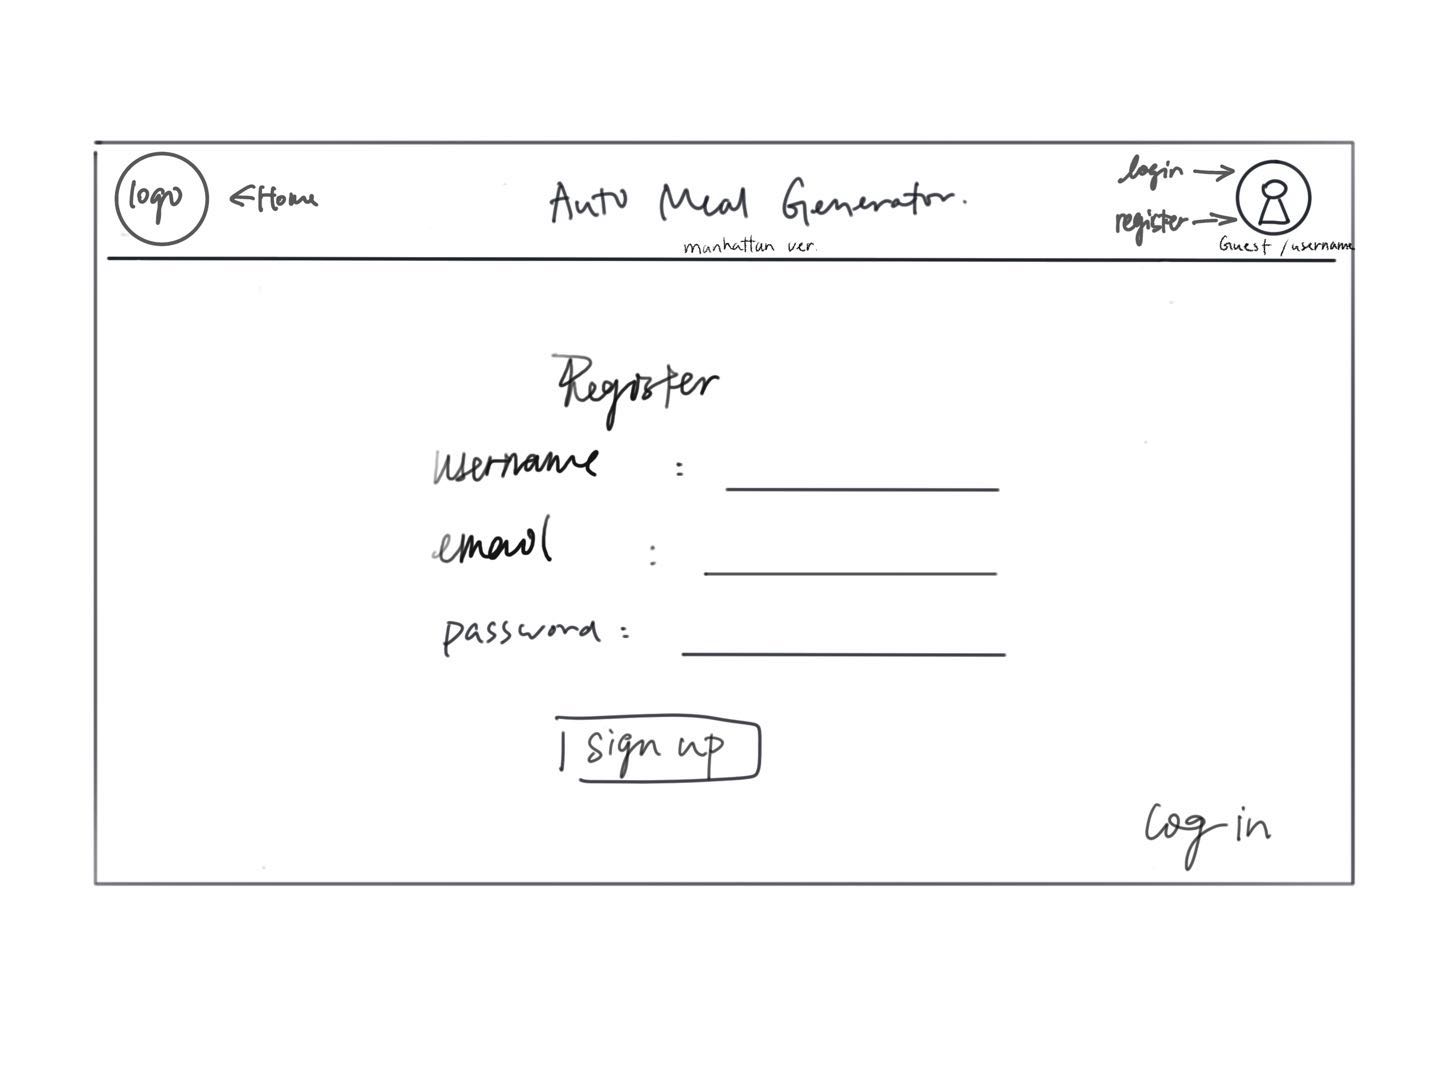 logo
←Home
Auto Meal Generator.
manhattan ver.
login →
register →
Guest / username
Register
username :
email :
password :
sign up
Log in